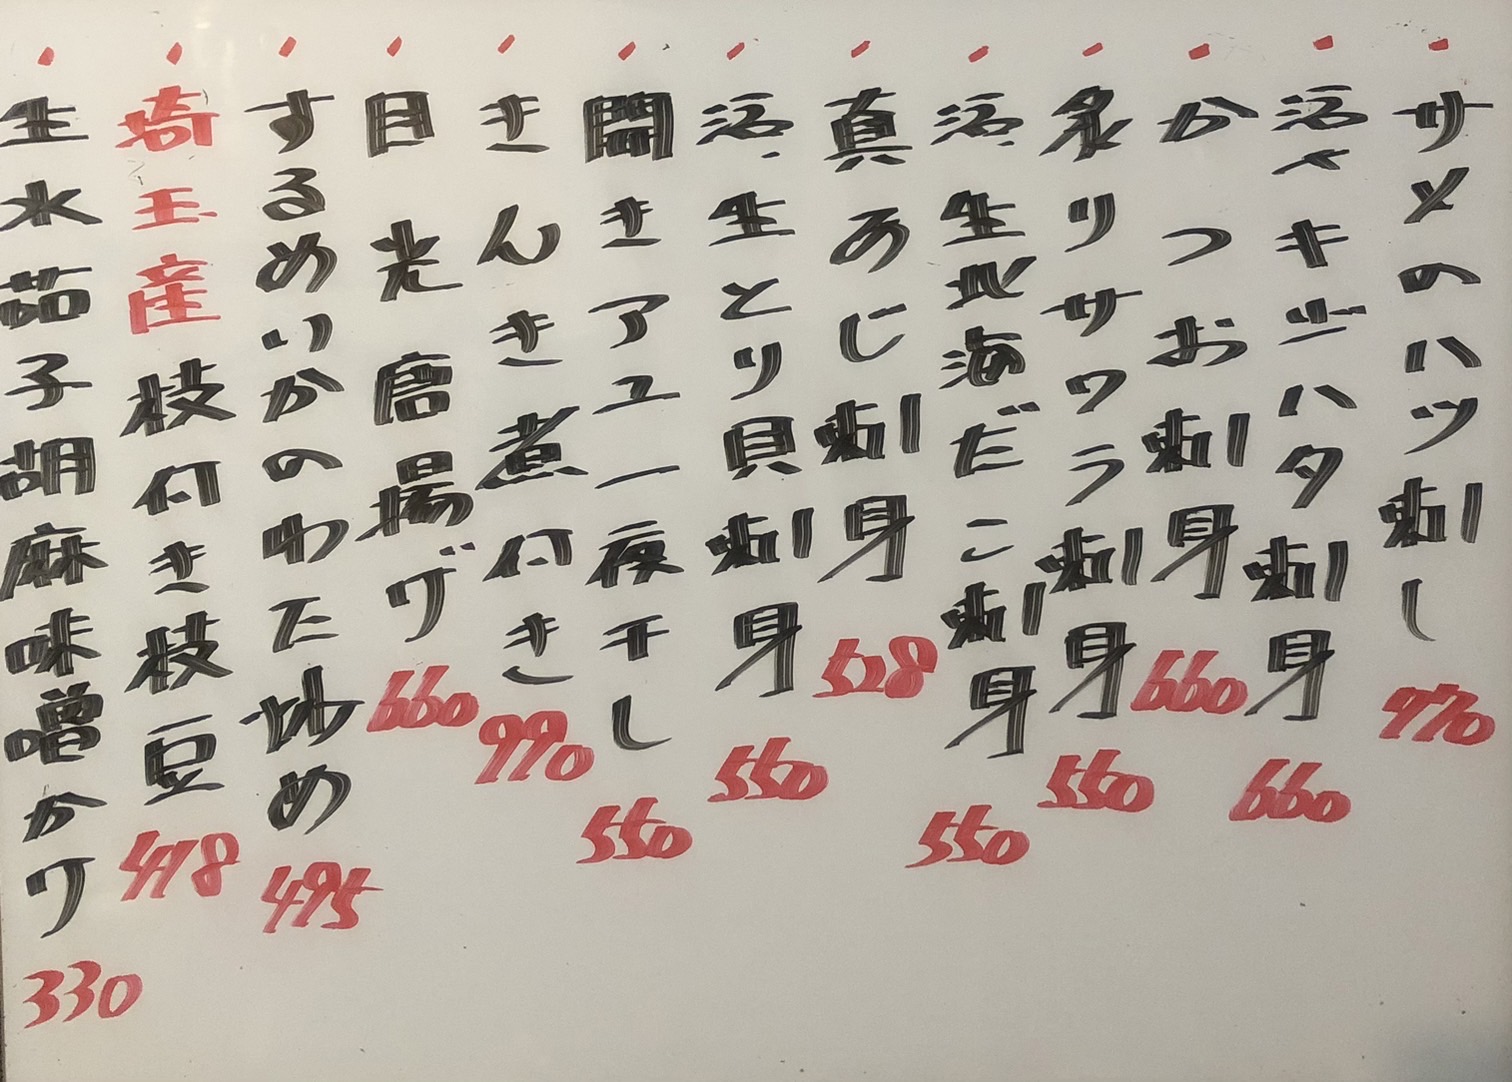 サメのハツ刺し 770
活〆キジハタ刺身 660
かつお刺身 660
炙りサワラ刺身 550
活・生地海だこ刺身 550
真あじ刺身 528
活・生とり貝刺身 550
開きアユ一夜干し 550
きんき煮付き 990
目光唐揚げ 660
するめいかのわた炒め 495
埼玉産枝付き枝豆 418
生水茄子胡麻味噌かけ 330